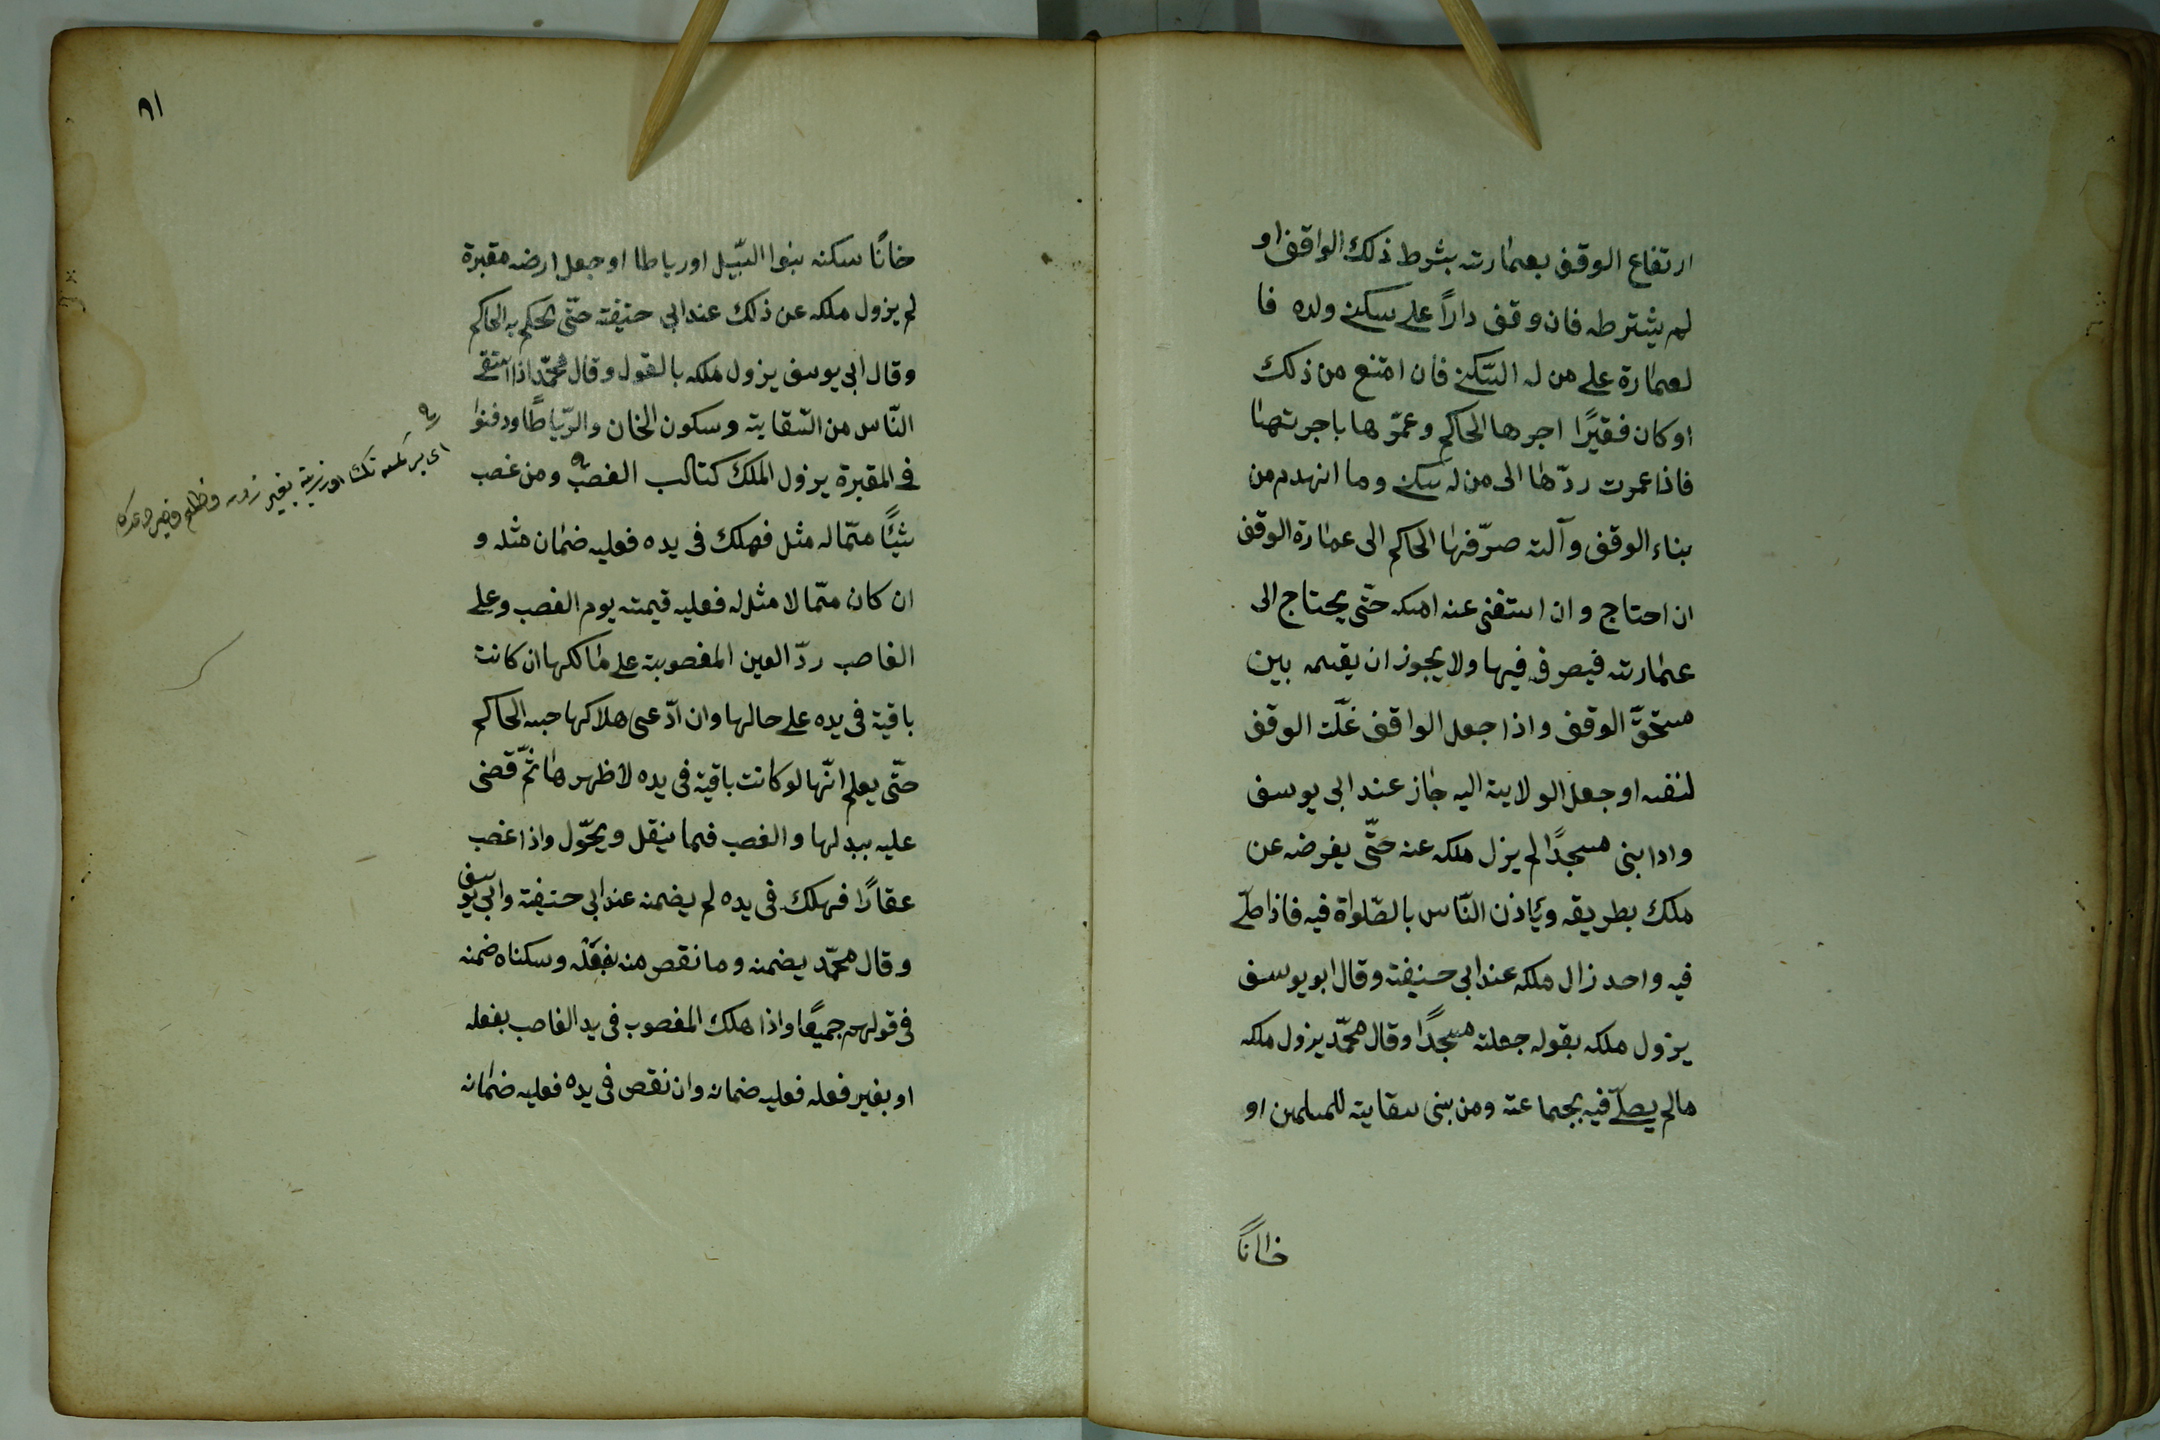 ارتفاع الوقف بعمارته بشرط ذلك الواقف او
لم يشترطه فان وقف داراً على سكنى ولده فا
لعمارة على من له السّكنى فان امتنع من ذلك
او كان فقيرًا اجرها الحاكم وعمّرها باجرتها
فاذا عمرت ردّها الى من له سكنى وما انهدم من
بناء الوقف وآلته صرّفها الحاكم الى عمارة الوقف
ان احتاج وان استغنى عنه امسكه حتّى يحتاج الى
عمارته فيصرف فيها ولا يجوز ان يقسمه بين
مستحقّ الوقف واذا جعل الواقف غلّت الوقف
لنفسه او جعل الولاية اليه جاز عند ابى يوسف
واذا بنى مسجدًا لم يزل ملكه عنه حتّى يفرضه عن
ملك بطريقه وياذن النّاس بالصّلواة فيه فاذا صلّى
فيه واحد زال ملكه عند ابى حنيفة وقال ابو يوسف
يزول ملكه بقوله جعلته مسجدًا وقال محمّد يزول ملكه
مالم يصلّى فيه بجماعة ومن بنى سقاية للمسلمين او
خانًا
٨١
خانًا سكنه بنوا السّبيل او رباطا او جعل ارضه مقبرة
لم يزول ملكه عن ذلك عند ابى حنيفة حتّى يحكم به الحاكم
وقال ابى يوسف يزول ملكه بالقول وقال محمّد اذا استقى
النّاس من السّقاية وسكون الخان والرّباطًا ودفنوا
فى المقبرة يزول الملك كتاب الغصب ومن غصب
شئًا ممّا له مثل فهلك فى يده فعليه ضمان مثله و
ان كان ممّا لا مثل له فعليه قيمته يوم الغصب وعلى
الغاصب ردّ العين المغصوبة على مالكها ان كانت
باقية فى يده على حالها وان ادّعى هلاكها حبسه الحاكم
حتّى يعلم انّها لو كانت باقية فى يده لاظهرها ثمّ قضى
عليه ببدلها والغصب فيما ينقل ويحوّل واذا غصب
عقارًا فهلك فى يده لم يضمنه عند ابى حنيفة وابى يوسف
وقال محمّد يضمنه وما نقص منه بفعله وسكناه ضمنه
فى قولهم جميعًا واذا هلك المغصوب فى يد الغاصب بفعله
او بغير فعله فعليه ضمانه وان نقص فى يده فعليه ضمانه